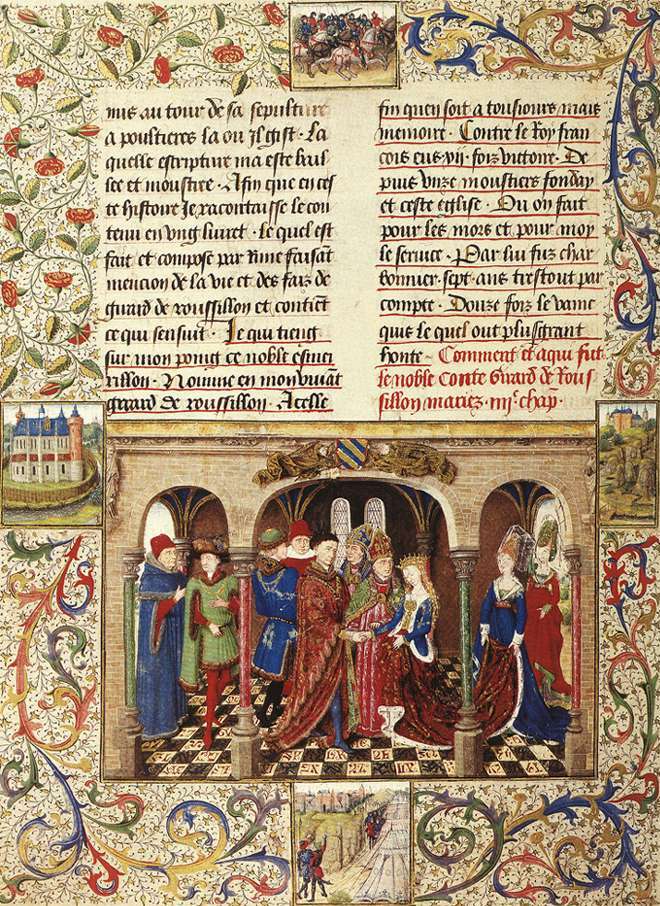 mis au tour de sa sepulture
a poultieres la ou il gist . La
quelle escripture ma este bail
lee et moustree . Afin que en ces
te histoire Je racontaisse le con
tenu en ung livret . le quel est
fait et compose par Rime faisant
mencion de la vie et des faiz de
girard de roussillon et contient
ce qui sensuit . Je qui tieng
sur mon poing ce noble esmeu
rillon . Nomme en mon vivant
gerard de roussillon . Acelle
fin quen soit a tousiours mais
memoire . Contre le Roy fran
cois eus .vij. foiz victoire . De
puis unze moustiers fonday
et ceste eglise . Ou on fait
pour les mors et pour moy
le service . Par lui fuz char
bonnier . sept . ans trestout par
compte . Douze foiz le vainc
quis le quel out plus grant
honte . Comment et a qui fut
le noble Conte Girard de Rous
sillon mariez .